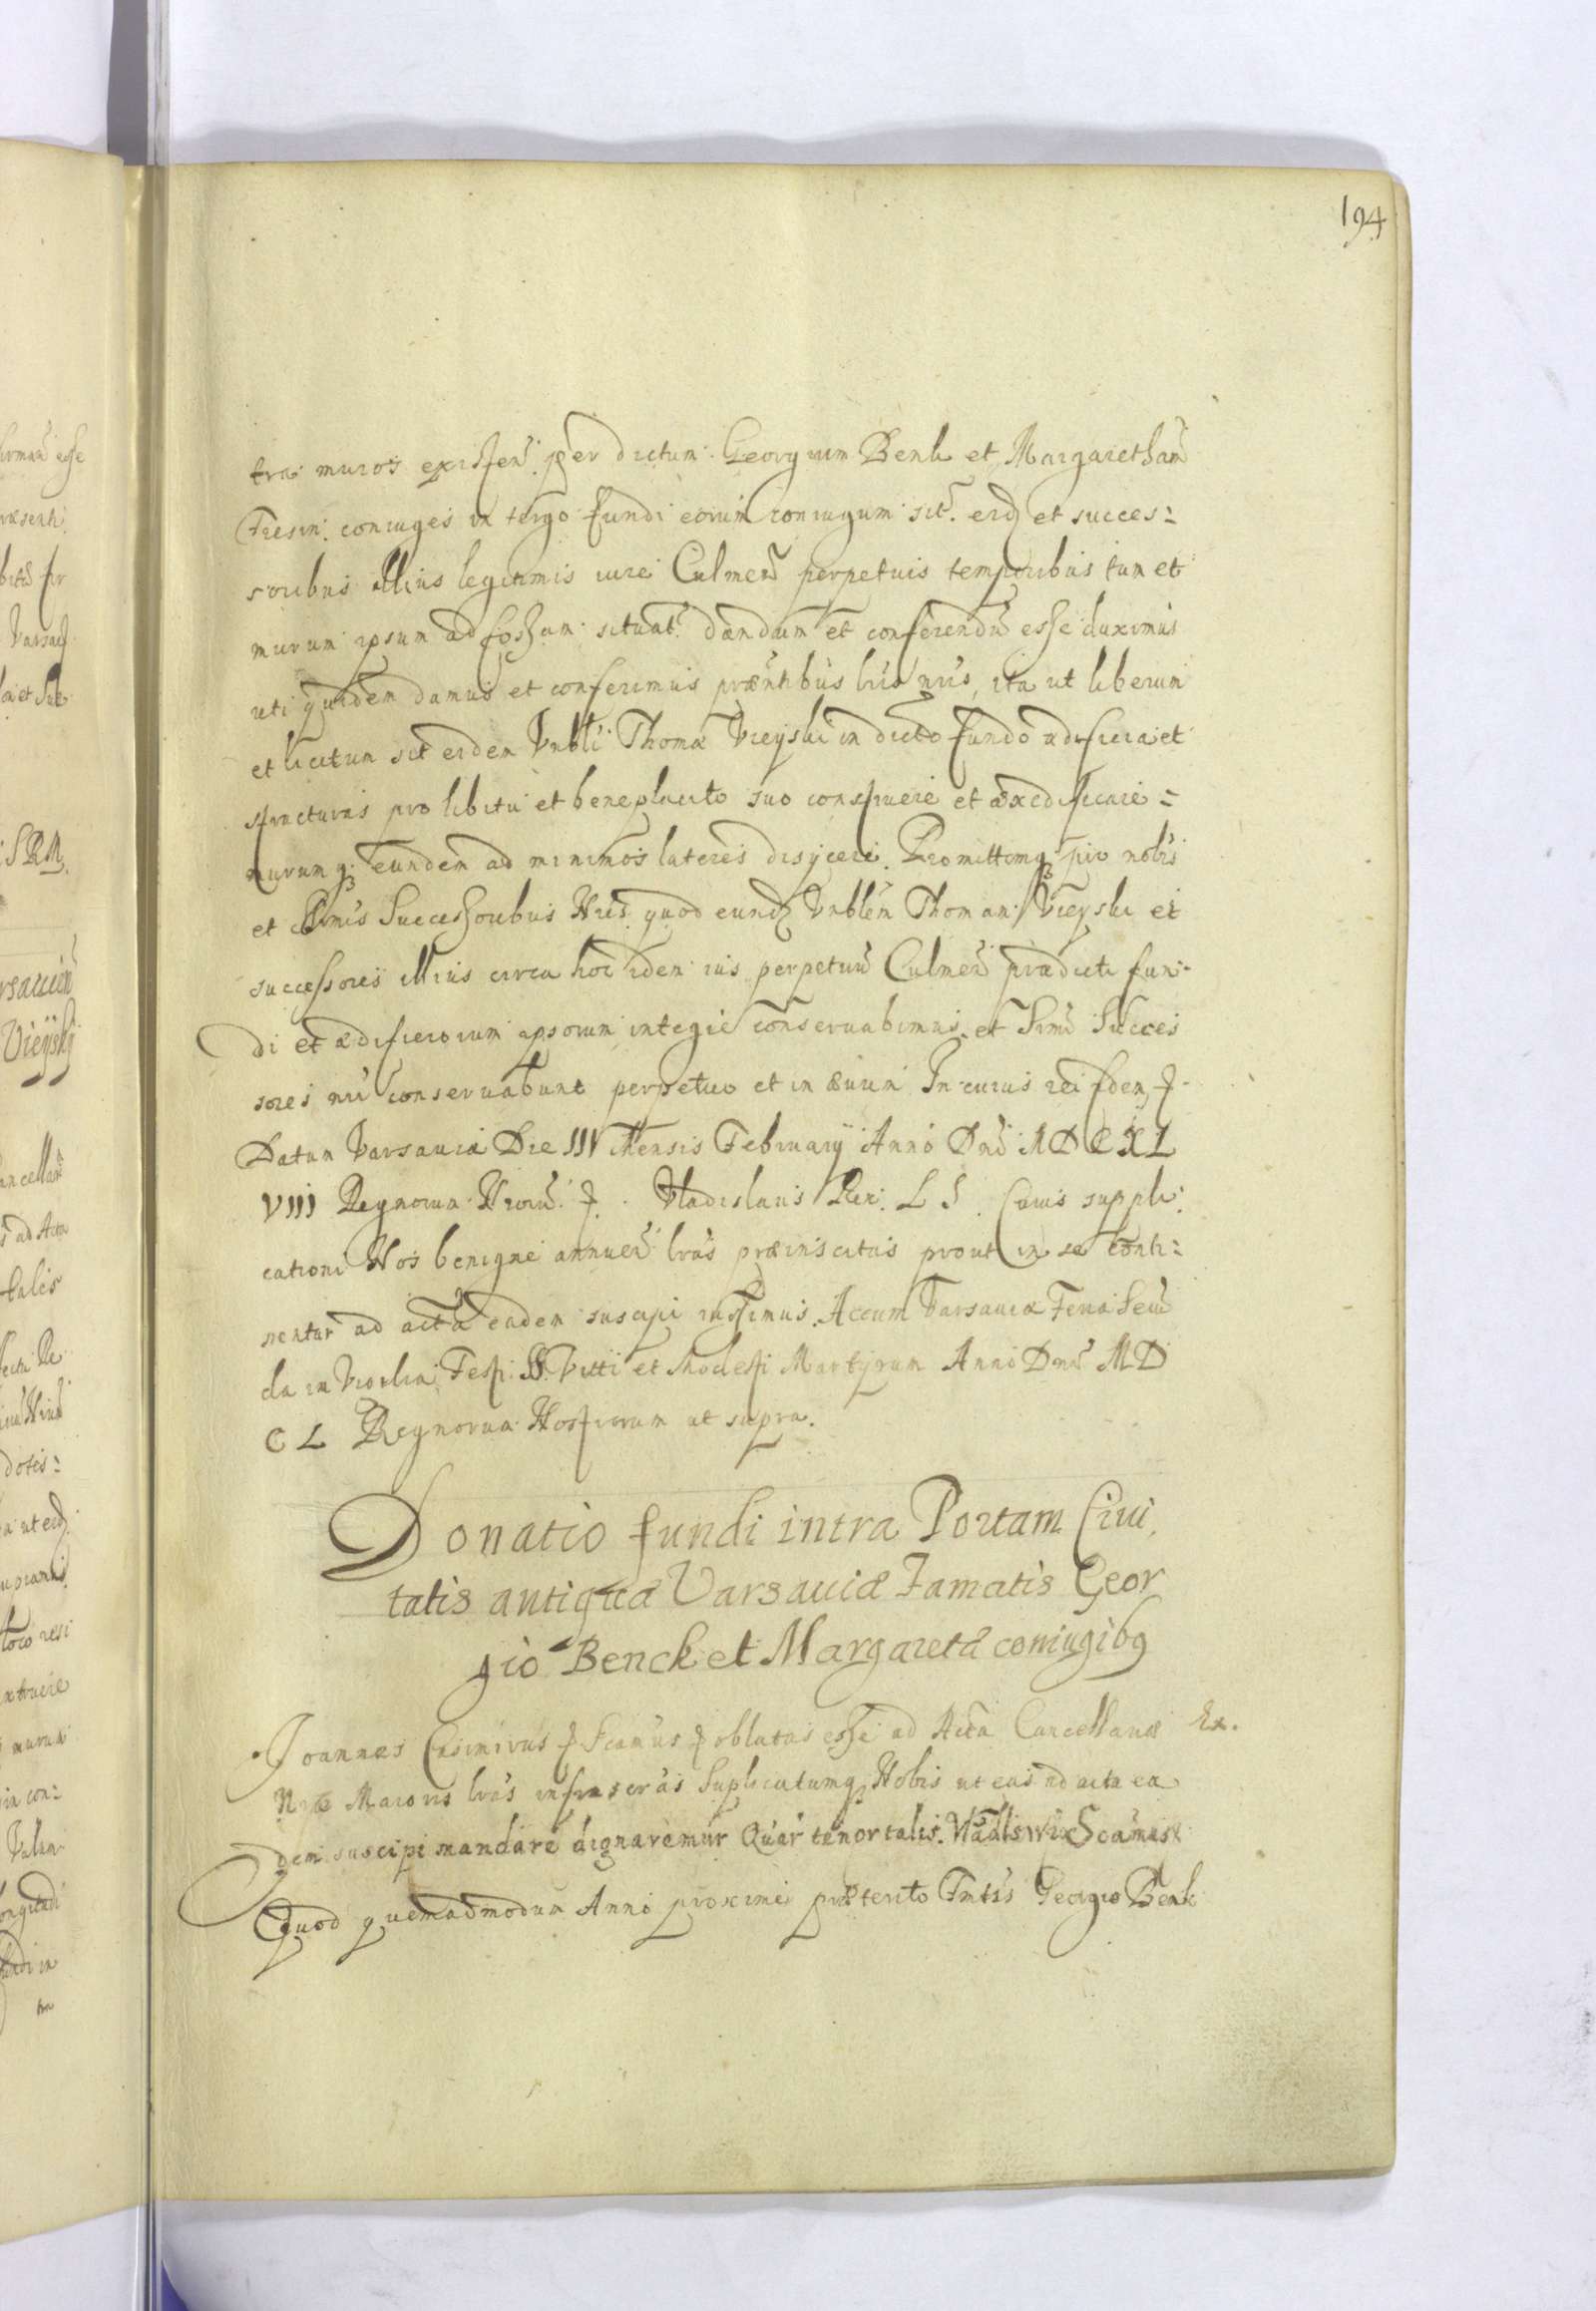 194
tra muros existen. per dictum Georgium Benk et Margaretham
coniuges in tergo fundi eorum coniugum sit. eid et succes:
soribus illius legitimis iure Culmen perpetuis temporibus tum et
murum ipsum ad fossam situat. dandum et conferendu esse duximus
uti quidem damus et conferimus præntibus lris nris, ita ut liberum
et licitum sit eidem Vnbli Thomæ Vieyski in dicto fundo ædificia et
structuras pro libitu et beneplacito suo construere et exædificare =
murumq eundem ad minimos lateres disijcere. Promittimq pro nobis
et Srmis Successoribus Nris quod eund Vnblem Thomam Vieyski et
successores illius circa hoc idem ius perpetuu Culmen prædicti fun-
di et ædificiorum ipsorum integre conservabimus et Srmi Succes
sores nri conservabunt perpetuo et in ævum In cuius rei fidem
Datum Varsaviæ Die IIV Mensis Februarij Anno Dni MDCXL
VIII Regnorum Nrorum Vladislaus Rex. L S. Cuius suppli:
cationi Nos benigne annuen lras præinsertas prout in se conti:
nentur ad acta eadem suscipi iussimus. Actum Varsaviæ Feria Secu
da in Vigilia Festi SS. Vitti et Modesti Martyrum Anno Dni MD
C L Regnorum Nostrorum ut supra.
Donatio fundi intra Portam Ciui,
tatis antiquæ Varsauiæ Famatis Geor
gio Benck et Margaretæ coniugibq
Joannes Casimirus & Scamus & oblatas esse ad Acta Cancellariæ Ex.
Nræ Maioris lras infrascras Suplicatumq Nobis ut eas ad acta ea
dem suscipi mandare dignaremur Quar tenor talis. Scamus
Quod quemadmodum Anno proxime præterito Fmtis Georgio Benk